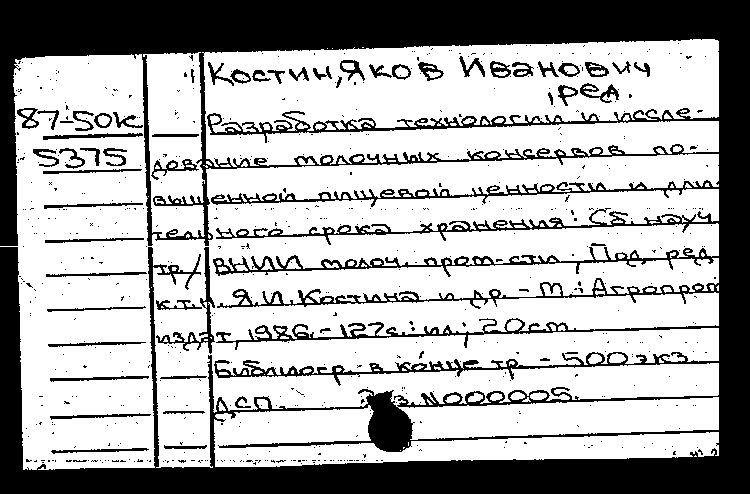 Костин, Яков Иванович
, ред.
87-50к Разработка технологии и иссле-
5375 дование молочных консервов по-
вышенной пищевой ценности и дли-
тельного срока хранения: Сб. науч
тр./ ВНИИ молоч. пром-сти; Под. ред
к.т.н. Я.И. Костина и др. - М.: Агропром
издат, 1986. - 127с.: ил.; 20cm.
Библиогр. в конце тр. - 500 экз
ДСП. Экз. N000005.